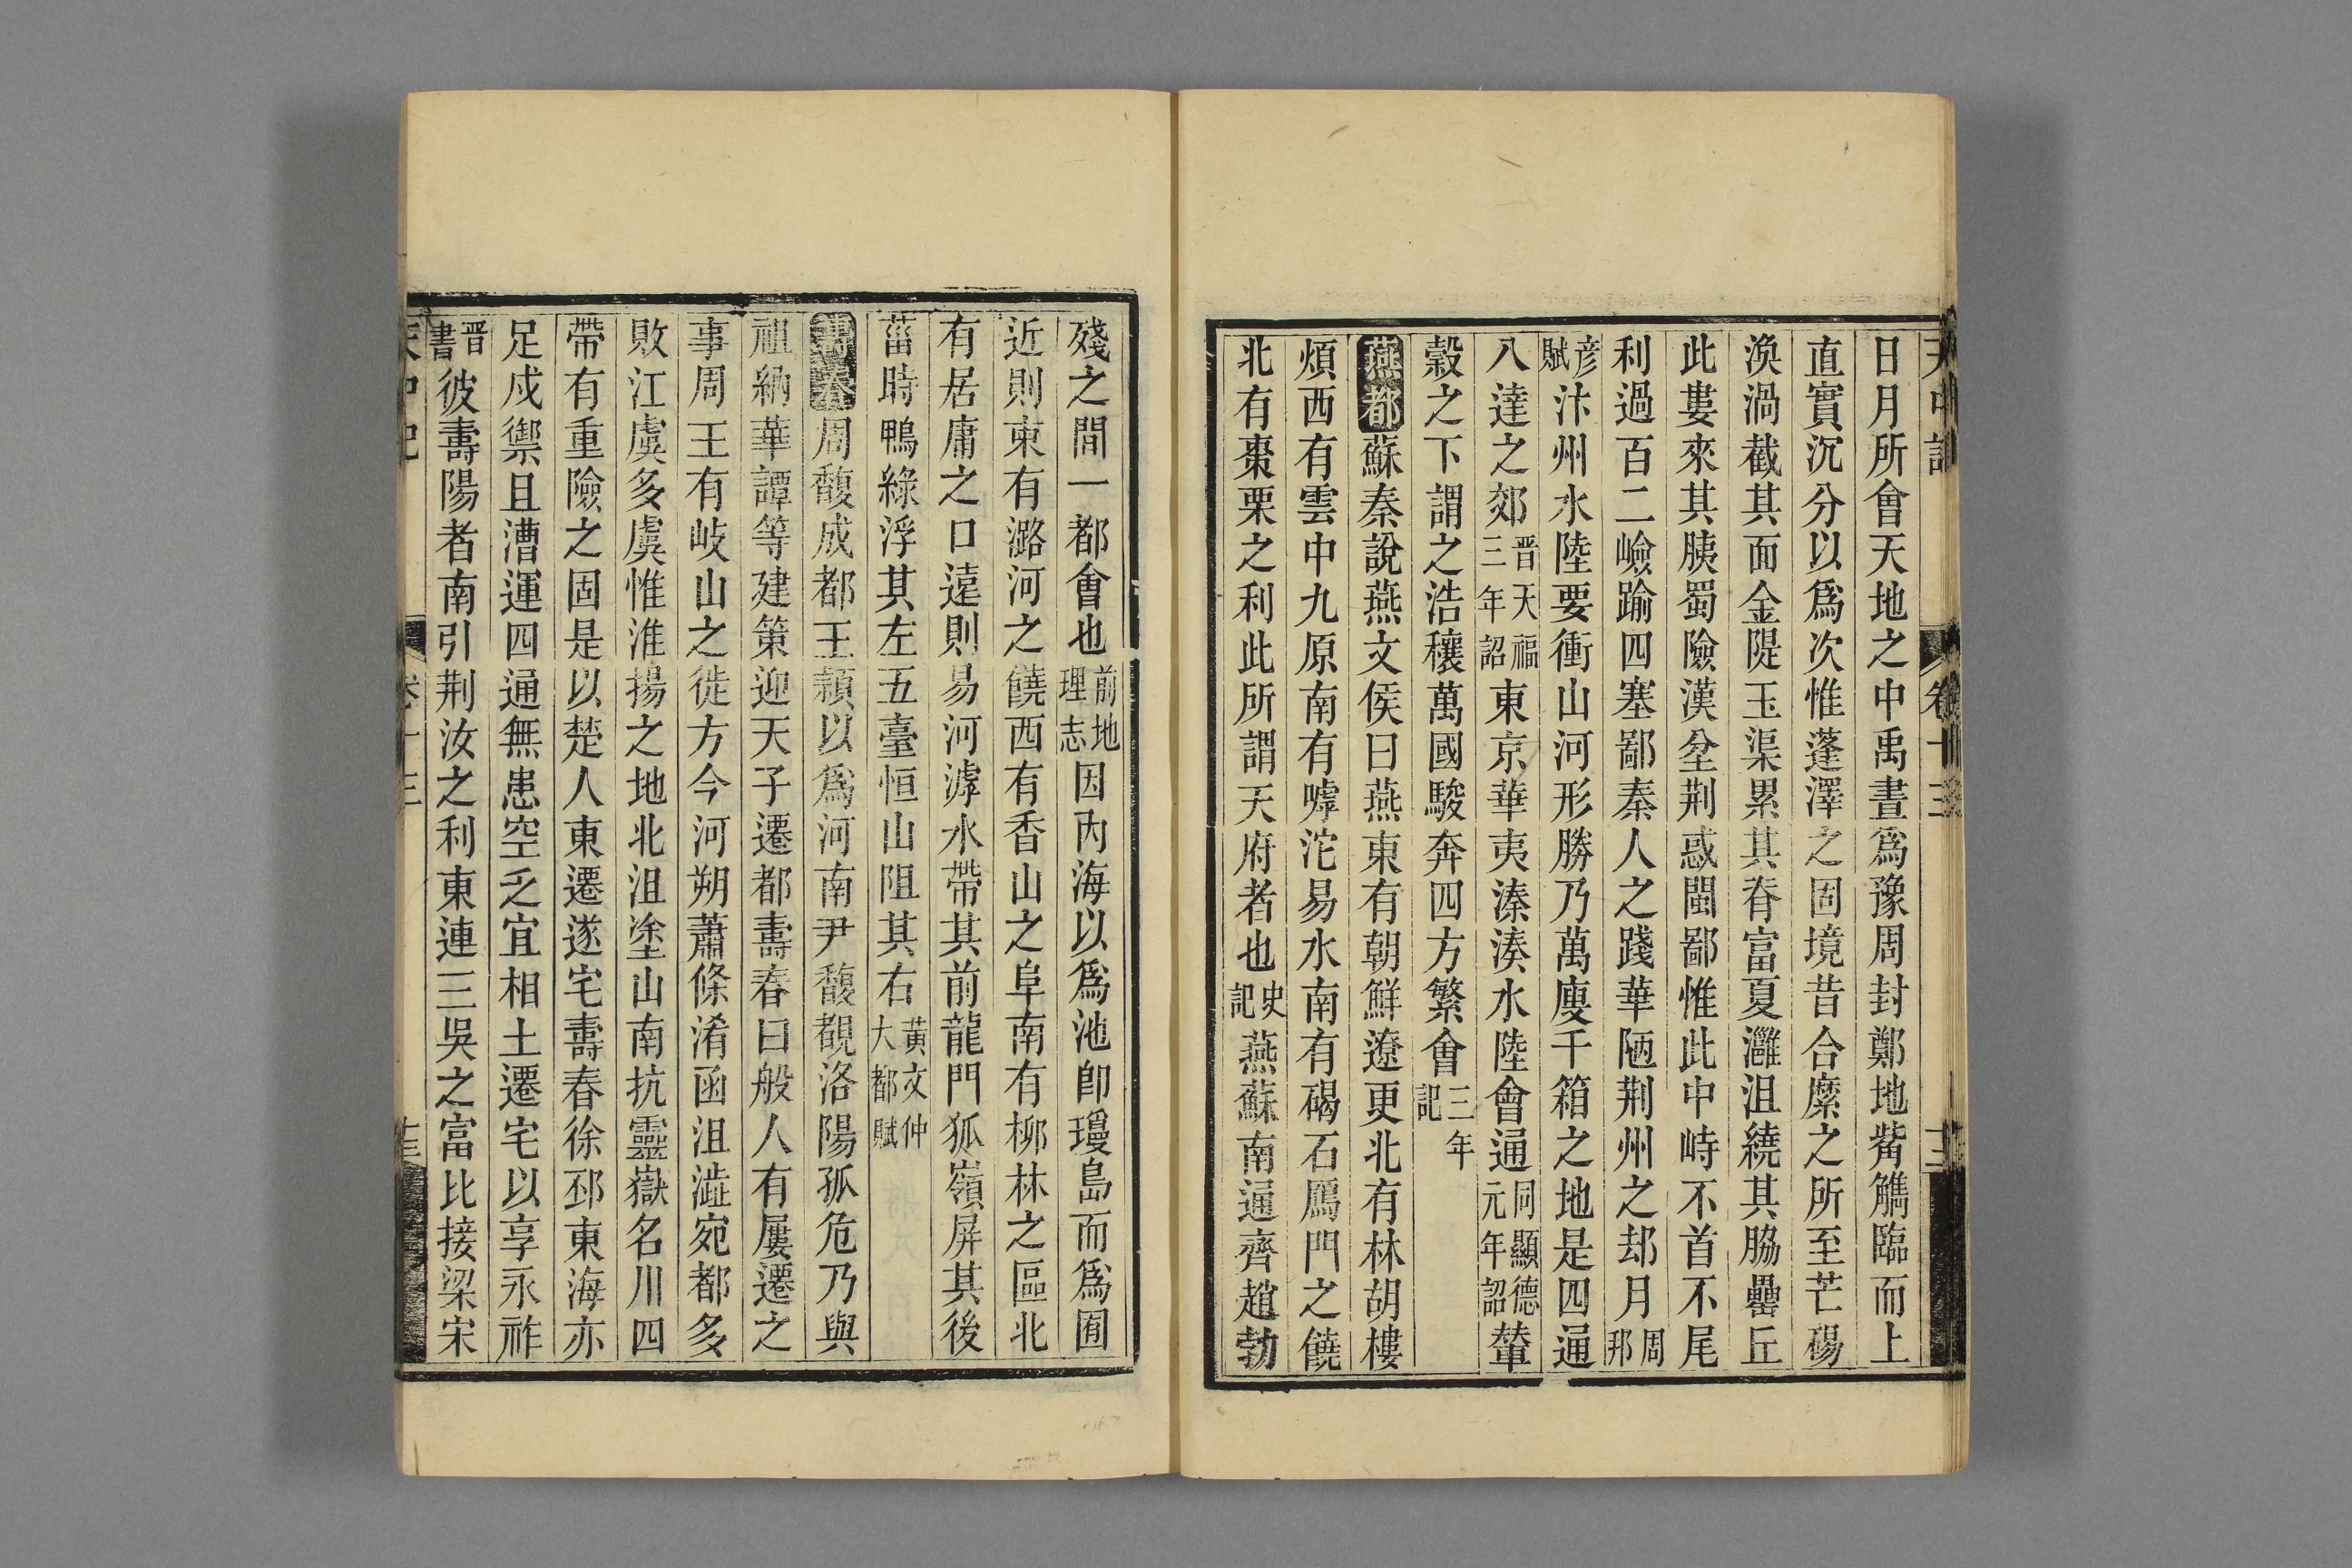 天中記 卷十三
日月所會天地之中禹畫爲豫周封鄭地觜觿臨而上
直實沉分以爲次惟蓬澤之固境昔合縻之所至芒碭
渙渦截其面金隄玉渠累其脊富夏灉沮繞其脇罍丘
此婁來其胰蜀險漢坌荆惑閩鄙惟此中峙不首不尾
利過百二嶮踰四塞鄙秦人之踐華陋荆州之却月周邦
彦賦汴州水陸要衝山河形勝乃萬廋千箱之地是四通
八達之郊晋天福三年詔東京華夷湊湊水陸會通同顯德元年詔輦
糓之下謂之浩穰萬國駿奔四方繁會三年記
燕都蘇秦說燕文侯曰燕東有朝鮮遼更北有林胡樓
煩西有雲中九原南有嘑沱易水南有碣石鴈門之饒
北有棗栗之利此所謂天府者也史記燕蘇南通齊趙勃
殘之間一都會也前地理志因內海以爲池卽瓊島而爲囿
近則東有潞河之饒西有香山之阜南有柳林之區北
有居庸之口遠則易河滹水帶其前龍門狐嶺屏其後
葘時鴨綠浮其左五臺恒山阻其右黃文仲大都賦
壽春周馥成都王穎以爲河南尹馥覩洛陽孤危乃與
祖納華譚等建策迎天子遷都壽春曰般人有屢遷之
事周王有岐山之徙方今河朔蕭條淆函沮澁宛都多
敗江虞多虞惟淮揚之地北沮塗山南抗靈嶽名川四
帶有重險之固是以楚人東遷遂宅壽春徐邳東海亦
足戍禦且漕運四通無患空乏宜相土遷宅以享永祚
晋書彼壽陽者南引荆汝之利東連三吳之富比接梁宋
天中記 卷十三